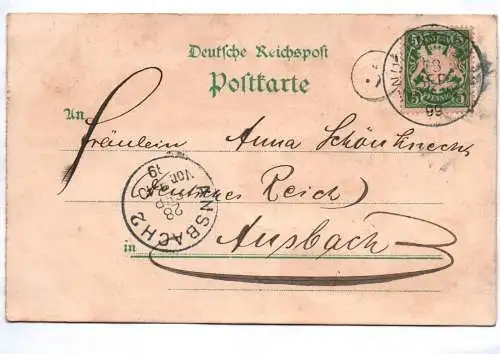 Deutsche Reichspost
Postkarte
An
Fräulein Anna Schönknecht
Deutsches Reich
in Ansbach
ANSBACH 2
28
SEP
Vor
5 5
5 5
28
SEP
99